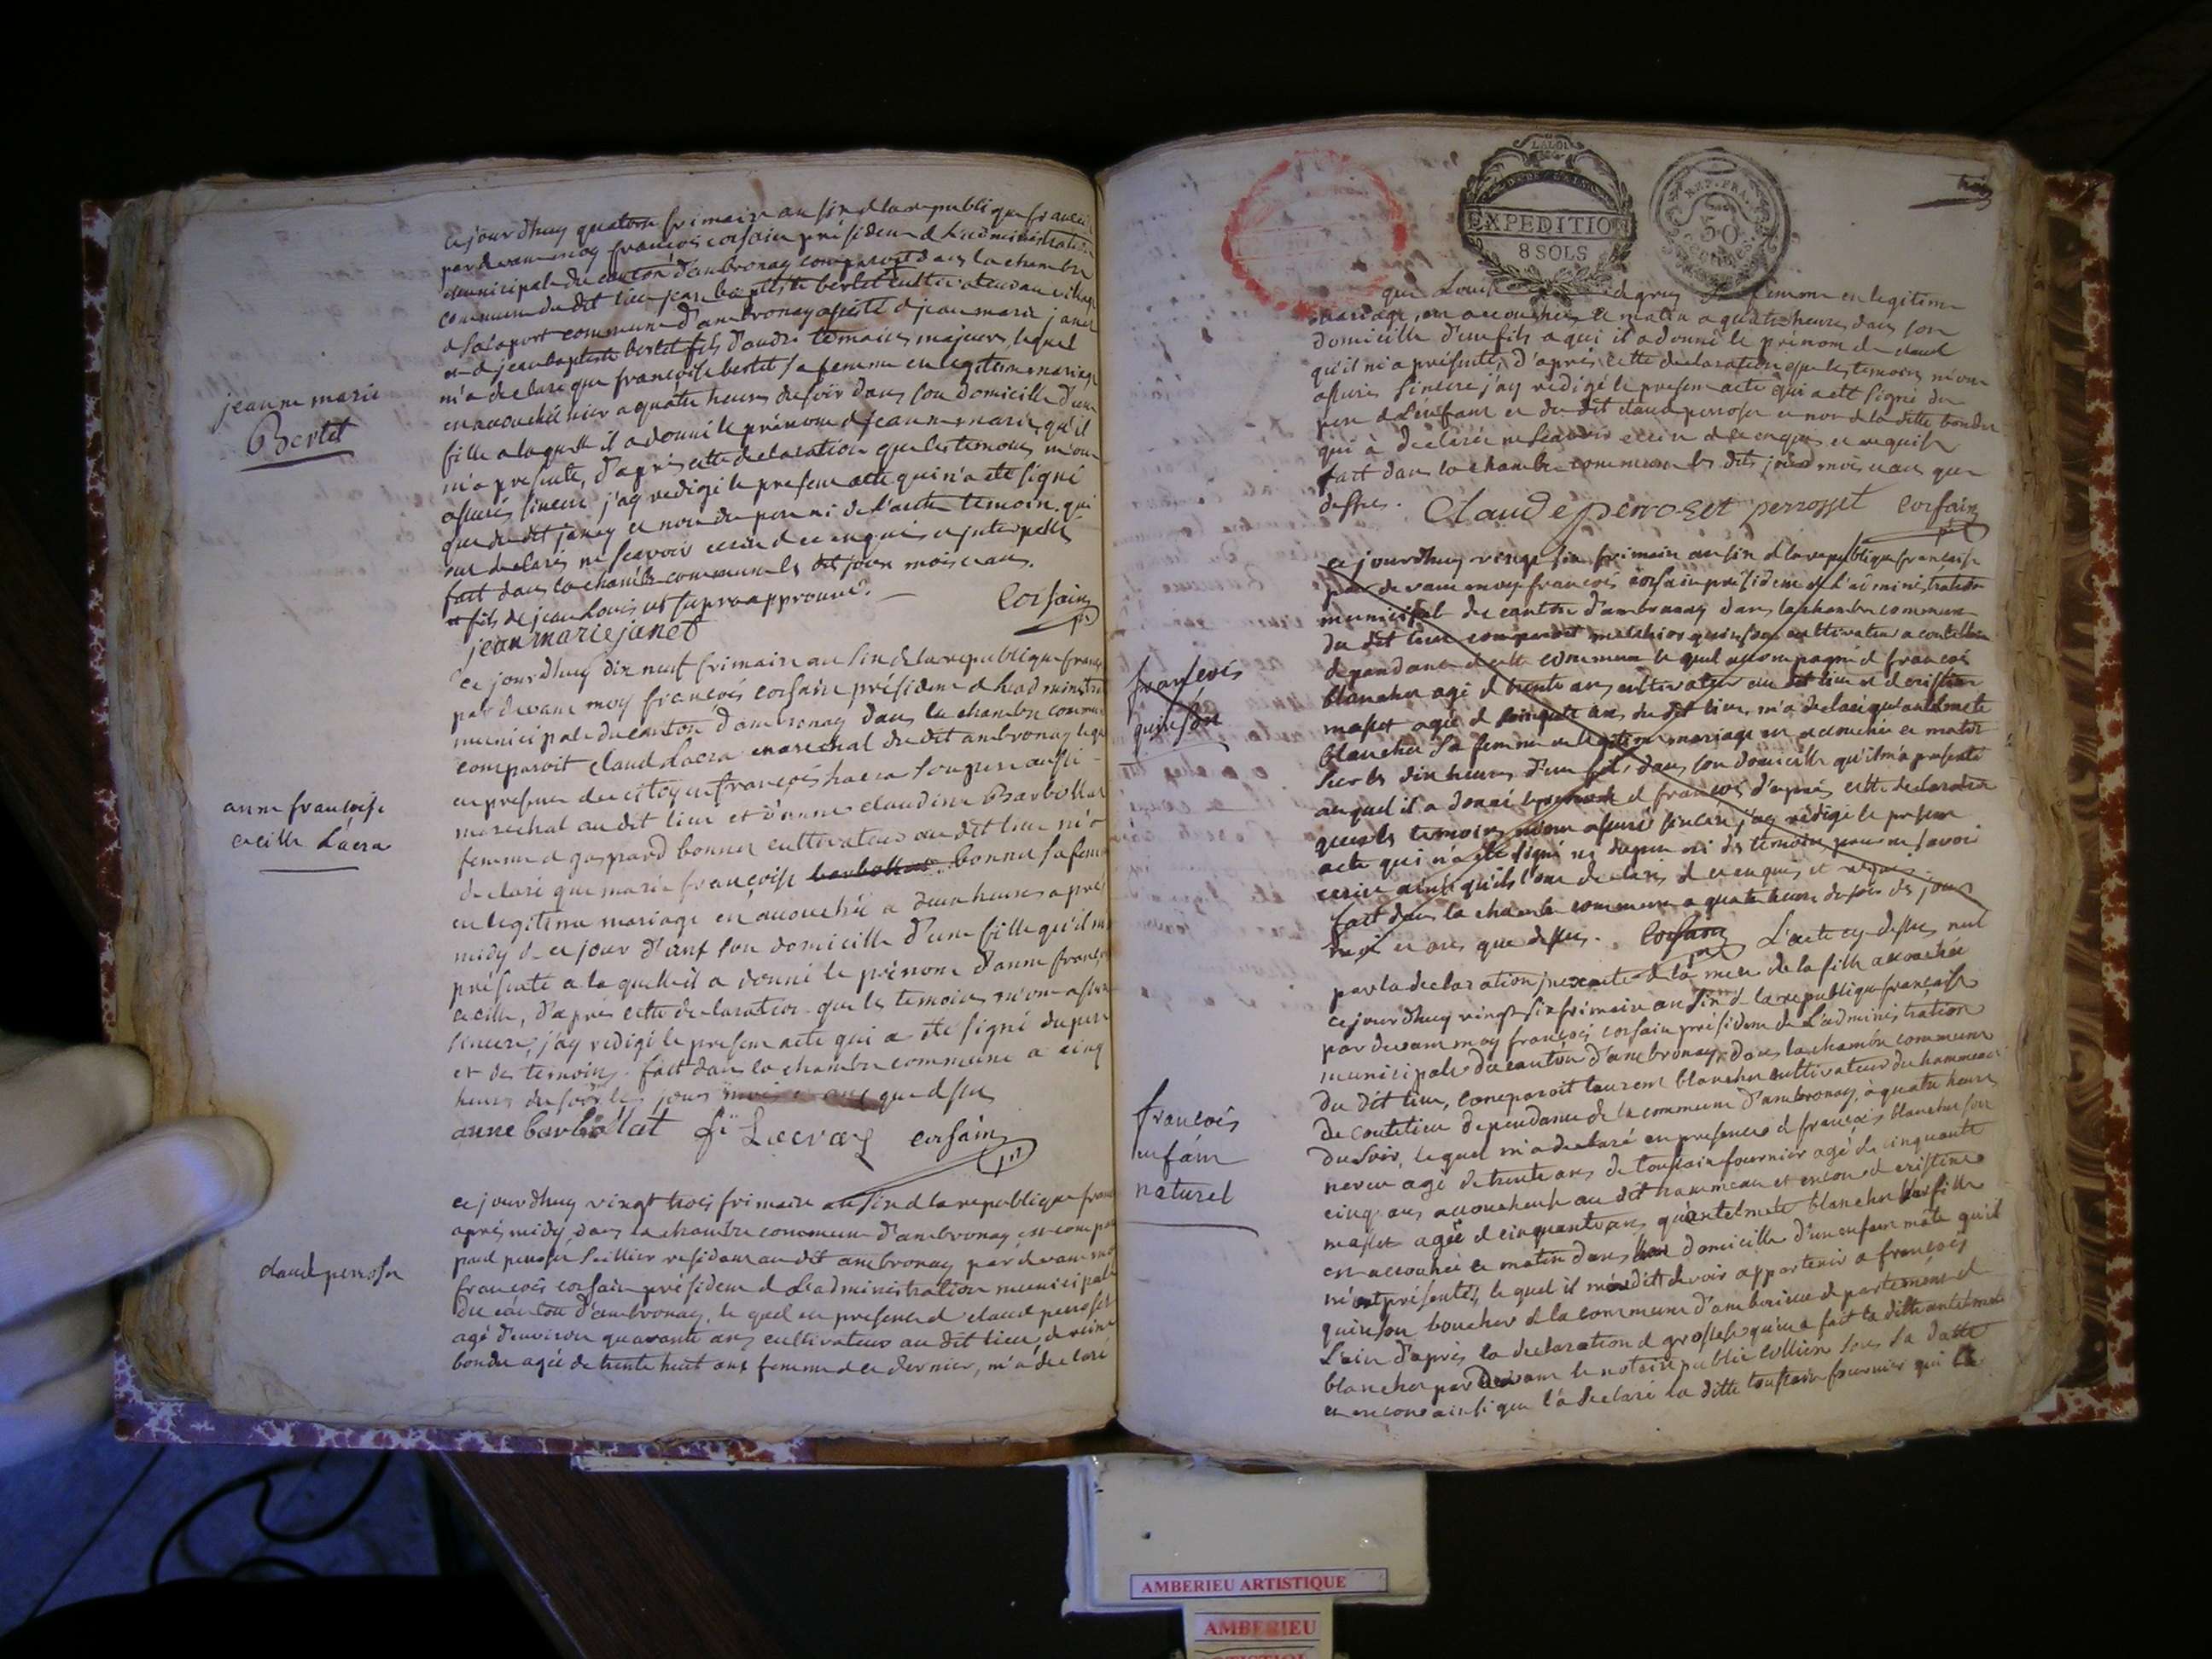 jeanne marie
Bertet
ce jourdhuy quatorze frimaire an six d la republique francai
par devant moy françois corsain president d L'administration
municipale du canton d'ambronay comparoit dans la chambre
commune du dit lieu jean baptiste bertet cultivateur au village
d Salaport commune d'ambronay assisté d jean marie janet
et d jean baptiste bertet fils d'andré temoins majeurs, lequel
m'a declaré que françoise bertet sa femme en legitime mariage
en accouchée hier a quatre heures du soir dans son domicille d'une
fille a laquelle il a donné le prénom d jeanne marie qu'il
m'a presenté, d'après cette declaration que les temoins m'ont
assurés sincere j'ay redigé le present acte qui n'a été signé
que du dit janet et non du pere ni de l'autre temoin qui
ont declarés ne scavoir ecrire d ce enquis et interpellés
fait dans la chambre commune les dit jour mois et an.
et fils de jean Louis ut supra approuvé. corsain
jean marie janet
anne françoise
cecille Lacra
ce jourdhuy dix neuf frimaire an six d la republique franç
par devant moy françois corsain président d Ladministra
municipale du canton d'ambronay dans la chambre commu
comparoit claud Lacra marechal du dit ambronay leq
en presence du citoyen françois Lacra son pere aussi
marechal au dit lieu et d'anne claudine Barbollat
femme d gaspard bonnet cultivateur au dit lieu m'a
declaré que marie françoise barbollat bonnet sa fem
en legitime mariage en accouchée a deux heures après
midy d ce jour d'ans son domicille d'une fille qu'il m'a
présenté a laquelle il a donné le prénom d'anne franço
cecille, d'après cette declaration que les temoins m'ont assur
sincere, j'ay redigé le present acte qui a été signé du pere
et des temoins. fait dans la chambre commune a cinq
heures du soir les jours mois et ans que dessus
anne barbollat fr Lacra corsain
claud perroset
ce jourdhuy vingt trois frimaire an six d la republique fran
après midy, dans la chambre commune d'ambronay en compa
paul perroset sellier residant au dit ambronay par devant mo
françois corsain président d Ladministration municipale
du canton d'ambronay, le quel en presence d claud perroset
agé d'environ quarante ans cultivateur au dit lieu, d reine
bondet agée de trente huit ans femme d ce dernier, m'a declaré
LA LOI
EXPEDITION
8 SOLS
REP. FRA.
50
CENTIMES
trois
que Louise degruy Sa femme en legitime
mariage, en accouchée ce matin a quatre heures dans son
domicille d'un fils a qui il a donné le prénom de claud
qu'il m'a présenté, d'après cette declaration que les temoins m'ont
assurés sincere j'ay redigé le present acte qui a été signé du
pere d L'enfant et du dit claud perroset et non de la ditte bondet
qui à declarée ne scavoir ecrire d ce enquise et requise
fait dans la chambre commune les dits jour mois et an que
dessus. Claude perroset perrosset corsain
françois
quinson
ce jourdhuy vingt six frimaire an six d la republique française
par devant moy françois corsain président d L'administration
municipal du canton d'ambronay dans la chambre commune
du dit lieu comparoit melchior quinson cultivateur a coutelieu
dependance d cette commune le quel accompagné d françois
blanchet agé d trente ans cultivateur au dit lieu et d cristine
masset agée d cinquante ans du dit lieu, m'a declaré qu'antelmete
blanchet Sa femme en legitime mariage en accouchée ce matin
sur les dix heures d'un fils dans son domicille qu'il m'a presenté
auquel il a donné le prenom d françois d'après cette declaration
que les temoins m'ont assuré sincere j'ay redigé le present
acte qui n'a été signé ni du pere ni des temoins pour ne savoir
ecrire ainsi qu'ils l'ont declarés d ce enquis et requis
fait dans la chambre commune a quatre heures du soir les jour
mois et ans que dessus. corsain L'acte cy dessus nul
par la declaration inexacte d la mere de la fille accouchée
françois
enfant
naturel
ce jourdhuy vingt six frimaire an six d la republique française
par devant moy françois corsain président de L'administration
municipale du canton d'ambronay, dans la chambre commune
du dit lieu, comparoit laurent blanchet cultivateur du hammeau
de coutelieu dependance de la commune d'ambronay, à quatre heures
du soir, lequel m'a declaré en presence d françois blanchet son
neveu agé de trente ans de toussaine fournier agé de cinquante
cinq ans accoucheuse au dit hammeau et encore d cristine
masset agée d cinquante ans qu'antelmete blanchet sa fille
en accouchée ce matin dans son domicille d'un enfant mâle qu'il
m'ont présentés, le quel il m'on dits devoir appartenir a françois
quinson boucher d la commune d'amberieu departement d
L'ain d'après la declaration d grossesse qu'en a fait la ditte antelmete
blanchet par devant le notaire public collier sous sa datte
et encore ainsi que l'a declaré la ditte toussaine fournier qui l'a
AMBERIEU ARTISTIQUE
AMBERIEU